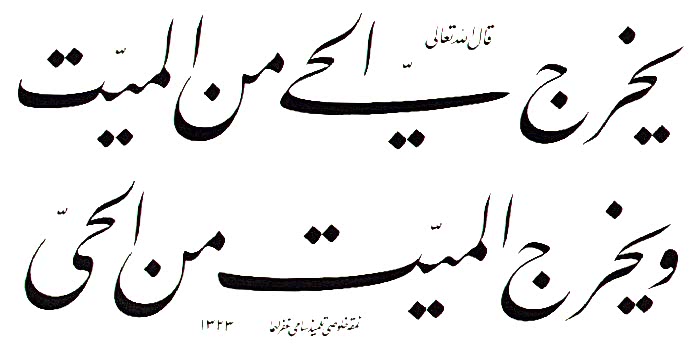 قال الله تعالى
يخرج الحي من الميّت
ويخرج الميّت من الحيّ
نمقه خلوصي تلميذ سامي غفر لهما
١٣٢٣